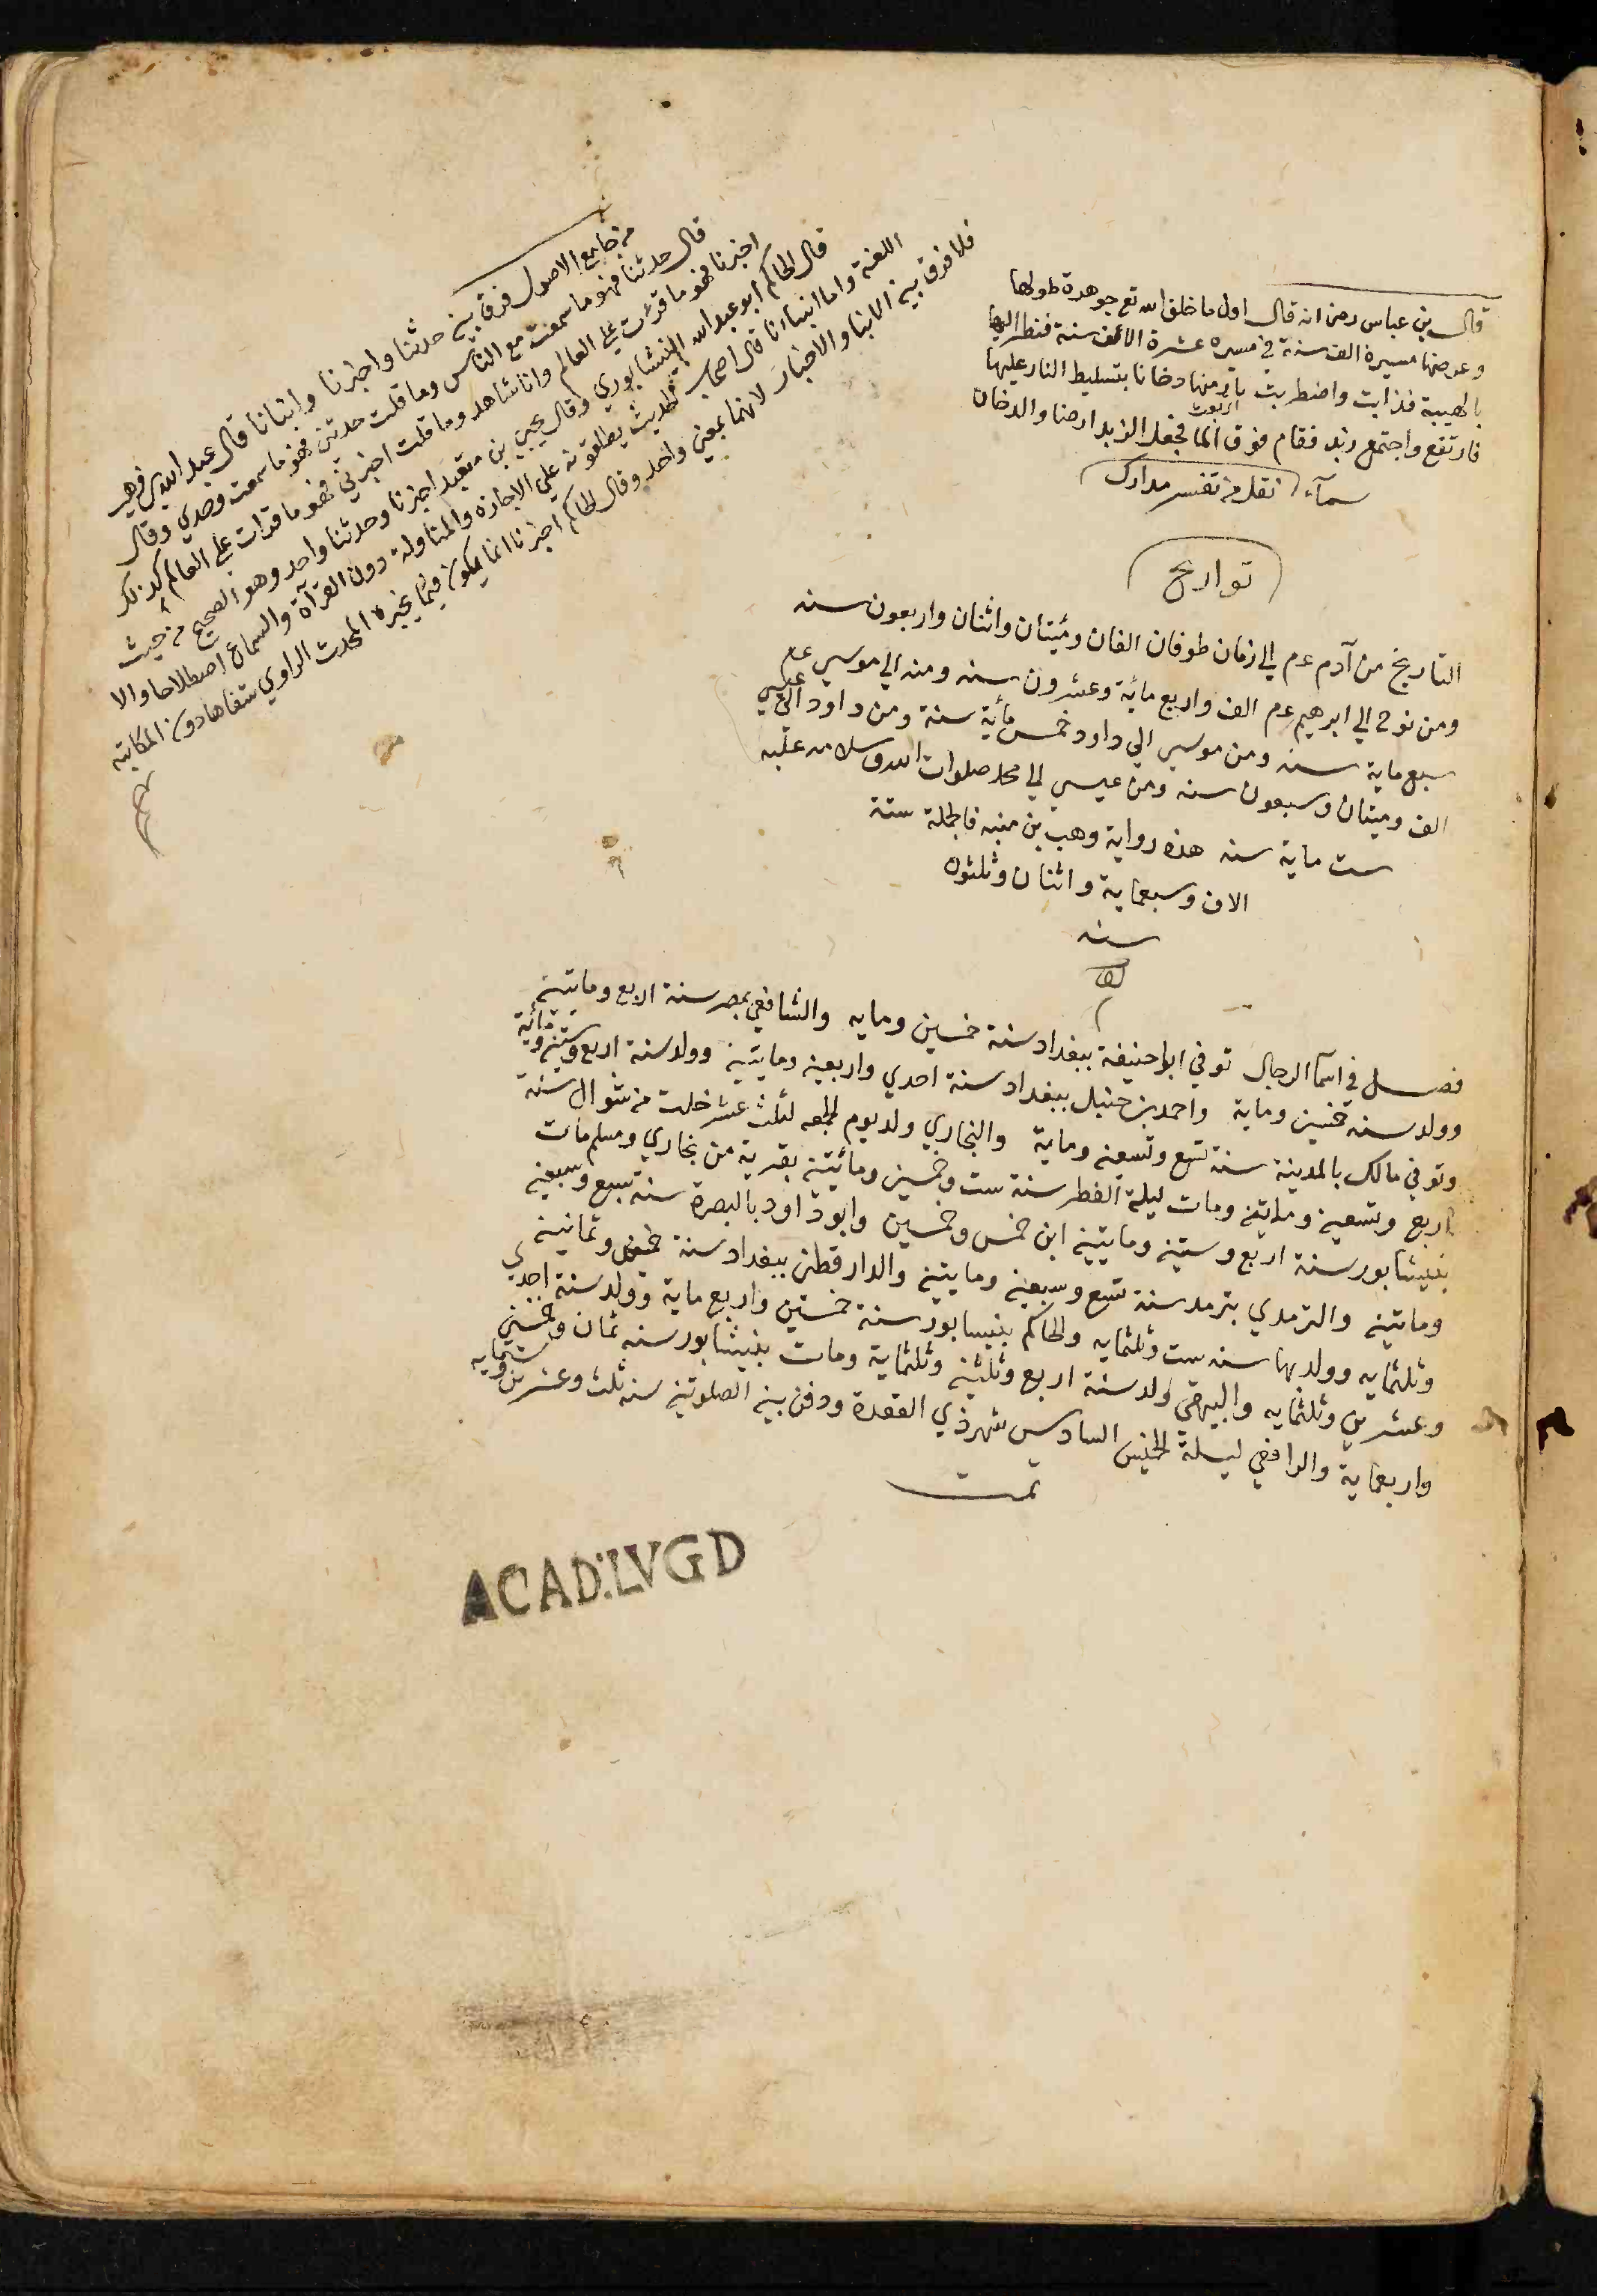 قال بن عباس رض انه قال اول ما خلق الله تع جوهرة طولها
وعرضها مسيرة الف سنة في مسيره عشرة الاف سنة فنظر اليها
بالهيبة فذابت واضطربت ثار منها دخانا بتسليط النار عليها
فارتفع واجتمع زبد فقام فوق الما فجعل الزبد ارضا والدخان
سمآء نقل من تفسر مدارك
تواريخ
التاريخ من آدم عم الي زمان طوفان الفان ومئيتان واثنان واربعون سنه
ومن نوح الي ابرهيم عم الف واربع مائة وعشرون سنه ومنه الي موسي عم
سبع ماية سنه ومن موسي الي داود خمس مأية سنة ومن داود الي عيسي
الف وميتان وسبعون سنه ومن عيسي الي محمد صلوات الله وسلامه عليه
ست ماية سنه هذه رواية وهب بن منبه فالجملة ستة
الاف وسبعماية واثنان وثلثون
سنه
فصل في اسما الرجال توفي ابو حنيفة ببغداد سنة خمسين ومايه والشافعي بمصر سنة اربع ومايتين
وولد سنه خمسين وماية واحمد بن حنبل ببغداد سنة احدي واربعين ومايتين وولد سنة اربع وستين ومائية
وتوفي مالك بالمدينة سنة تسع وتسعين وماية والبخاري ولد يوم الجمعه لثلث عشر خلت من شوال سنة
اربع وتسعين ومايتن ومات ليلة الفطر سنة ست وخمسين ومائيتين بقرية من بخاري ومسلم مات
بنيشابور سنة اربع وستين ومايتين ابن خمس وخمسين وابو داود بالبصرة سنة سبع وسبعين
وماتين والترمدي بترمد سنة تسع وسبعين ومايتين والدارقطني ببغداد سنة خمس وثمانين
وثلثمايه وولد بها سنه ست وثلثمايه والحاكم بنيسابور سنة خمستين واربع ماية وولد سنة احدي
وعشرين وثلثمايه والبيهقي ولد سنة اربع وثلثين وثلثماية ومات بنيشابور سنه ثمان وخمسين
واربعماية والرافعي ليلة الخميس السادس شهر ذي القعدة ودفن بين الصلوتين سنه ثلث وعشرين وستمايه
تمت
من جامع الاصول فرق بين حدثنا واخبرنا وانبانا قال عبد الله بن وهب
قال حدثنا فهو ما سمعت مع الناس وما قلت حدثني فهو ما سمعت وحدي وقال
اخبرنا فهو ما قرئت علي العالم وانا شاهد وما قلت اخبرني فهو ما قرات علي العالم كذلك
قال الحاكم ابو عبد الله النيشابوري وقال يحيي بن سعيد اخبرنا وحدثنا واحد وهو الصحيح من حيث
اللغة واما انبانا قال اصحاب الحديث يطلقونه علي الاجازه والمناولة دون القرآة والسماع اصطلاحا والا
فلا فرق بين الانبا والاخبار لانهما بمعني واحد وقال الحاكم اخبرنا انما يكون فيما يخبره المحدث الراوي شفاها دون المكاتبه
ACAD.LVGD